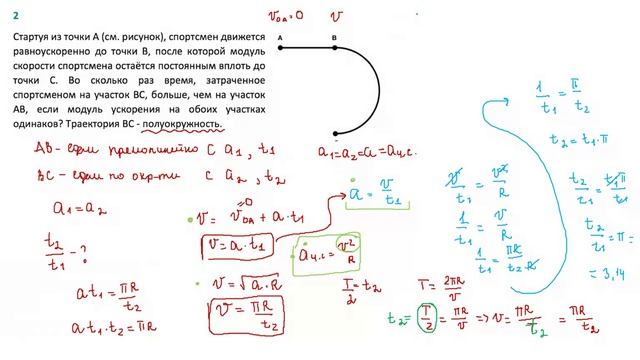 2
Стартуя из точки А (см. рисунок), спортсмен движется
равноускоренно до точки В, после которой модуль
скорости спортсмена остаётся постоянным вплоть до
точки С. Во сколько раз время, затраченное
спортсменом на участок ВС, больше, чем на участок
АВ, если модуль ускорения на обоих участках
одинаков? Траектория ВС - полуокружность.
v₀ₐ=0 v
A B
АВ - едем прямолинейно с a₁, t₁
ВС - едем по окр-ти с a₂, t₂
a₁=a₂
t₂/t₁ - ?
at₁ = πR/t₂
at₁·t₂ = πR
a₁=a₂=a=aц.с.
v = v₀ₐ + a·t₁
=0
v = a·t₁
v = √a·R
v = πR/t₂
a = v/t₁
aц.с = v²/R
T/2 = t₂
T = 2πR/v
t₂ = T/2 = πR/v => v = πR/t₂ = πR/t₂
v/t₁ = v²/R
1/t₁ = v/R
1/t₁ = πR/t₂·R
1/t₁ = π/t₂
t₂ = t₁·π
t₂/t₁ = t₁π/t₁
t₂/t₁ = π =
= 3,14